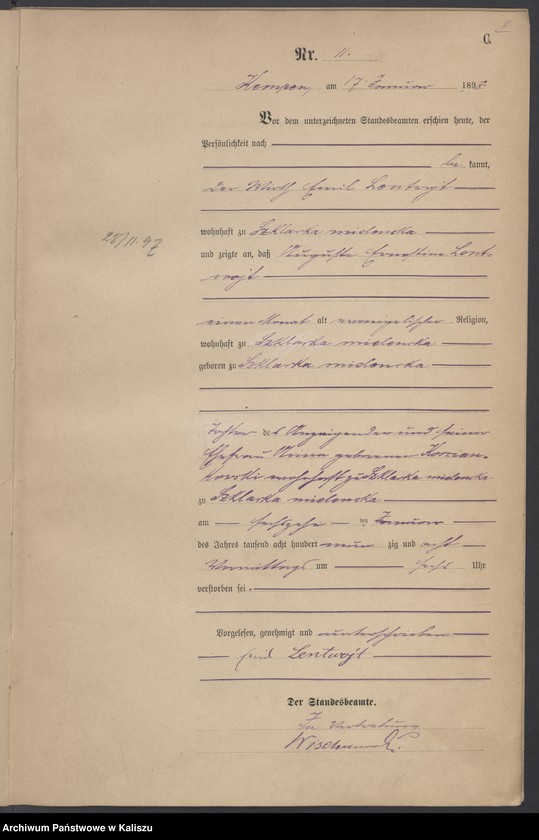 11
C.
Nr. 11.
Kempen, am 17 Januar 1898.
Vor dem unterzeichneten Standesbeamten erschien heute, der
Persönlichkeit nach
be kannt,
der Wirth Emil Lentwojt
wohnhaft zu Szklarka mielencka
25/11.97
und zeigte an, daß Auguste Ernestine Lent-
wojt
einen Monat alt evangelischer Religion,
wohnhaft zu Szklarka mielencka
geboren zu Szklarka mielencka
Tochter des Anzeigenden und seiner
Ehefrau Anna geborenen
wohnhaft zu Szklarka mielencka
zu Szklarka mielencka
am sechszehn ten Januar
des Jahres tausend acht hundert neun zig und acht
Vormittags um sechs Uhr
verstorben sei.
Vorgelesen, genehmigt und unterschrieben
Emil Lentwojt
Der Standesbeamte.
In Vertretung
Archiwum Państwowe w Kaliszu